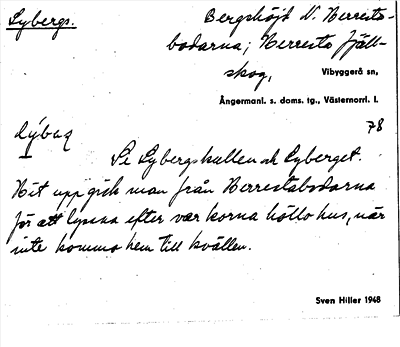 Lybergs. Bergshöjd N. Herresta-
bodarna; Herresta Fjäll-
skog, Vibyggerå sn,
Ångermanl. s. doms. tg., Västernorrl. l.
lýbaq 78
Se Lybergskullen och Lyberget.
Hit upp gick man från Herrestabodarna
för att lyssna efter var korna höllo hus, när
inte kommo hem till kvällen.
Sven Hiller 1948